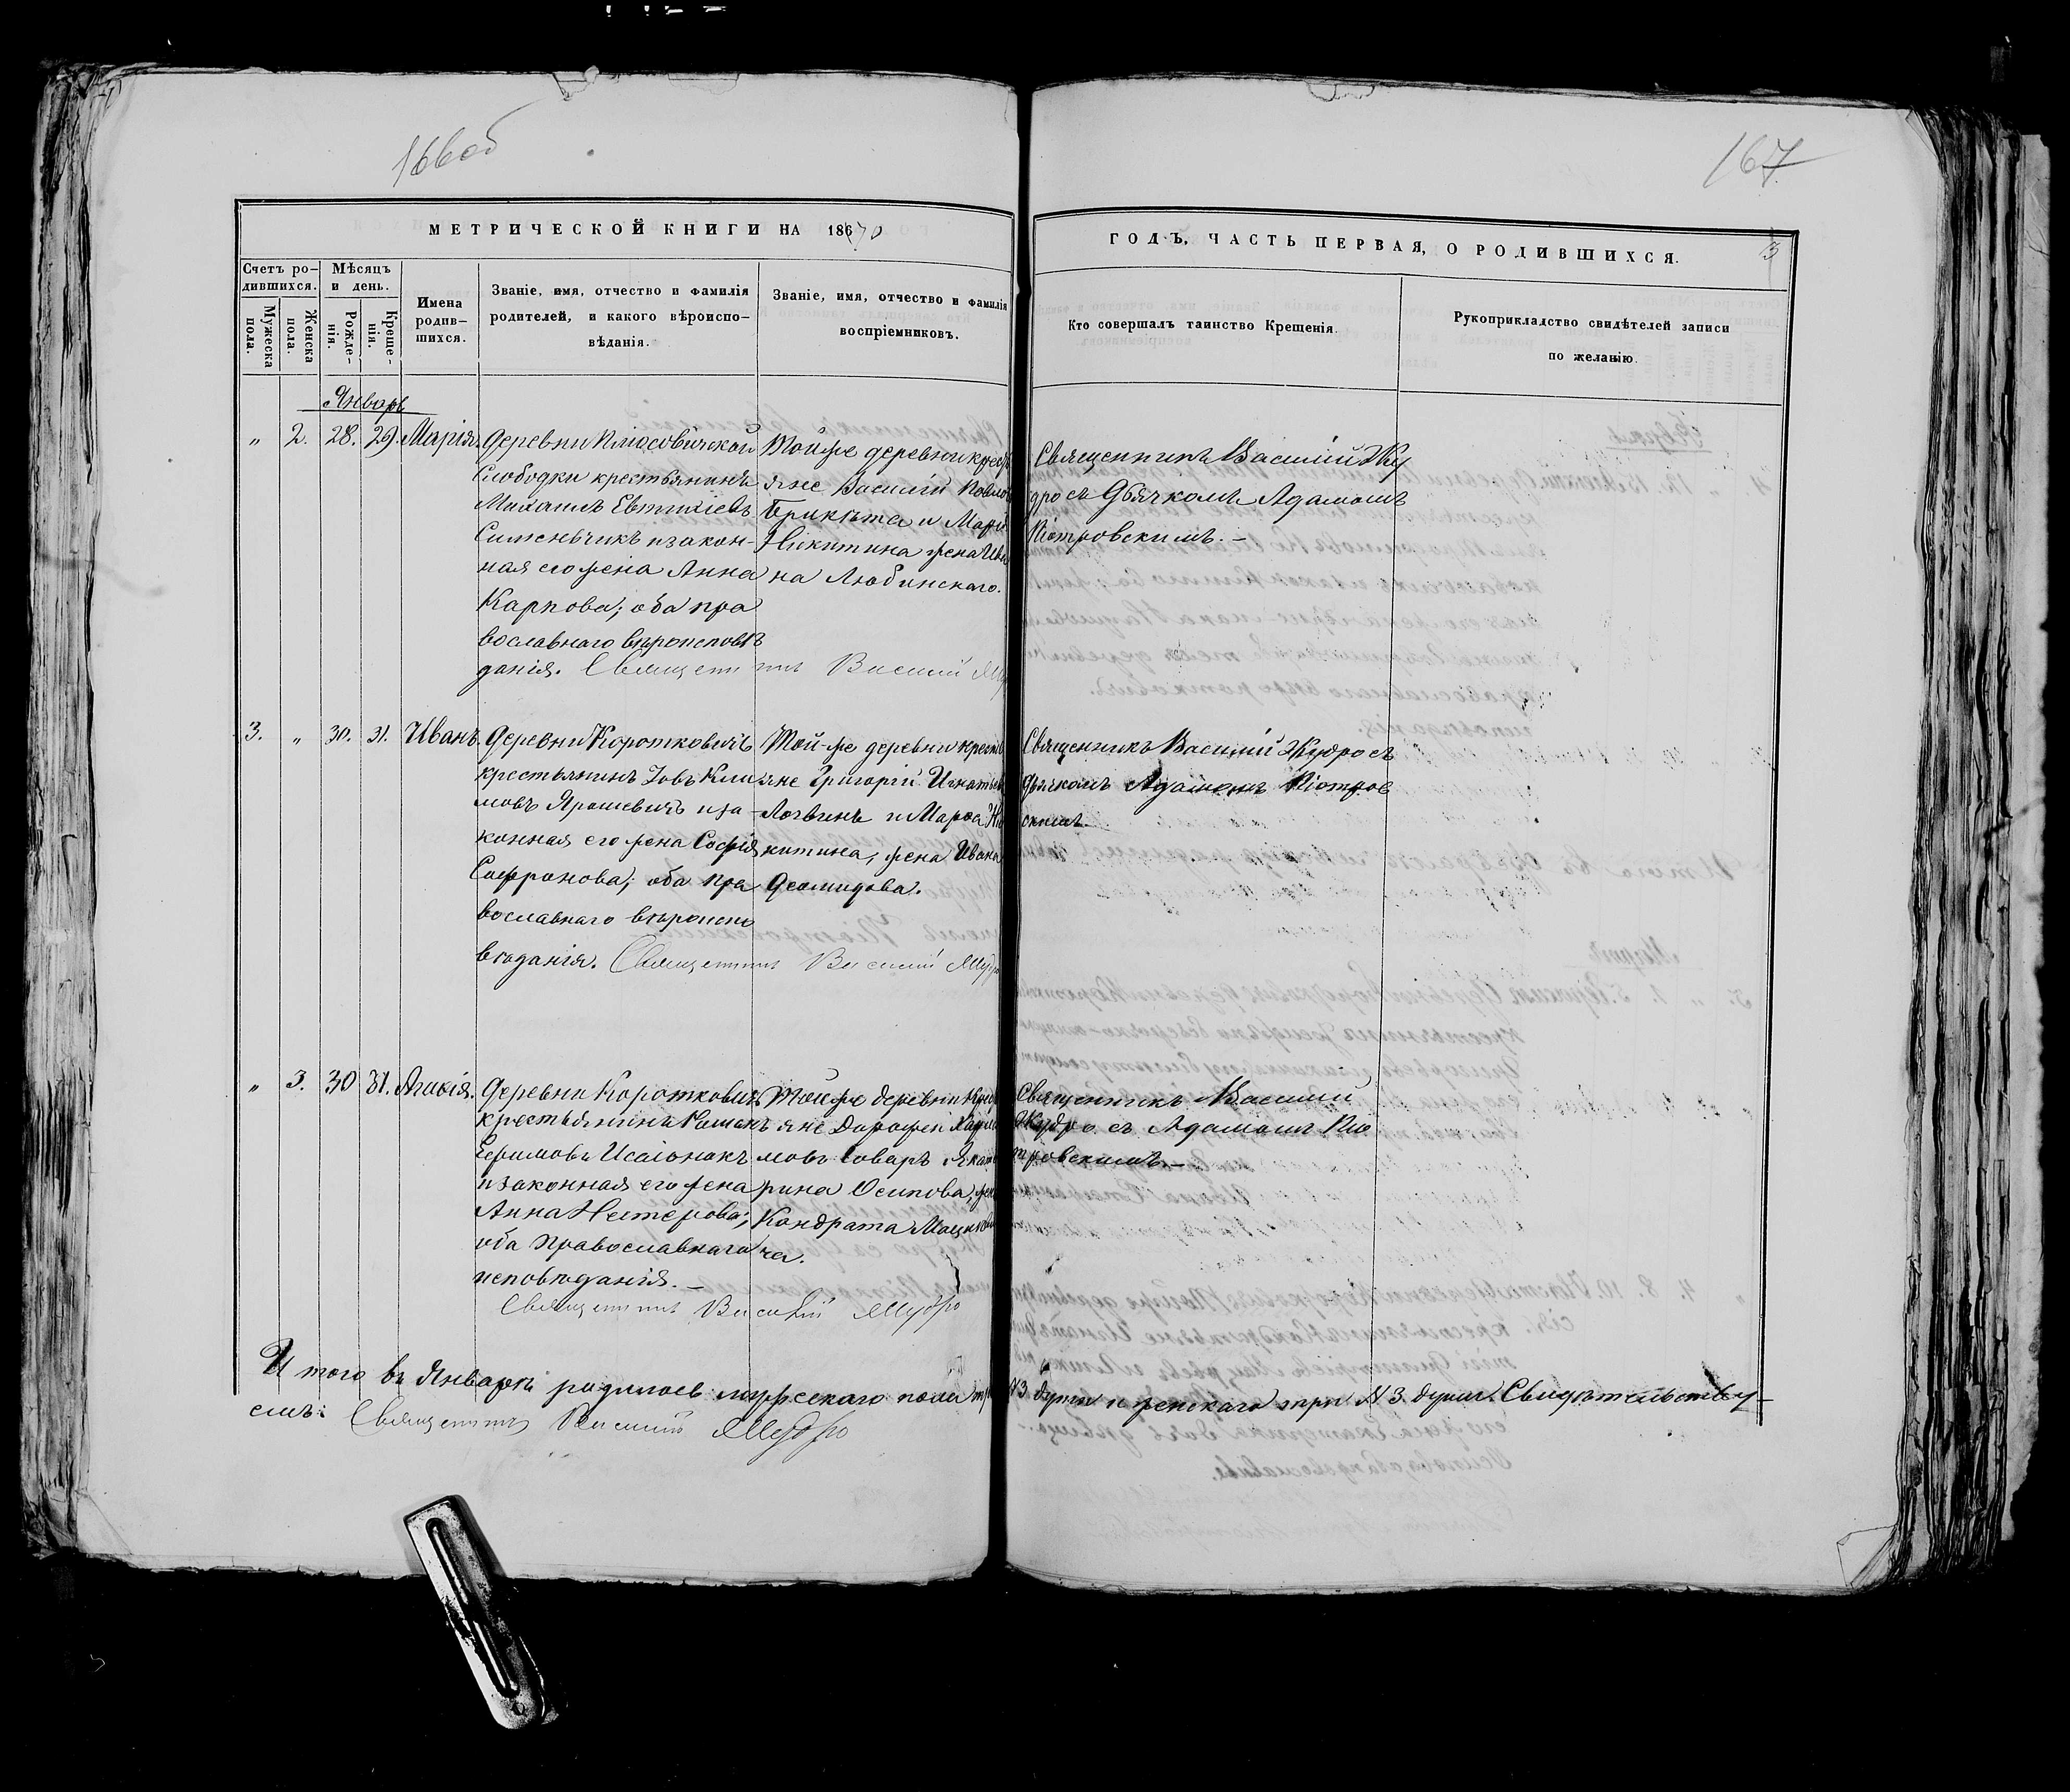 166 об
167
МЕТРИЧЕСКОЙ КНИГИ НА 1870
ГОДЪ, ЧАСТЬ ПЕРВАЯ, О РОДИВШИХСЯ.
3
Счетъ ро-
дившихся.
Мужеска
пола.
Женска
пола.
Мѣсяцъ
и день.
Рожде-
нія.
Креще-
нія.
Имена
родив-
шихся.
Званіе, имя, отчество и фамилія
родителей, и какого вѣроиспо-
вѣданія.
Званіе, имя, отчество и фамилія
воспріемниковъ.
Кто совершалъ таинство Крещенія.
Рукоприкладство свидѣтелей записи
по желанію.
Январь
„ 2. 28. 29. Марія.
Деревни Плюсовичской
Слободки крестьянинъ
Михаилъ Евтихіевъ
Сименьчикъ и закон-
ная его жена Анна
Карпова; оба пра
вославнаго вѣроисповѣ
данія.
Той же деревни крест
яне Василій Павло
Брикета и Марія
Никитина жена Ива
на Любинскаго.
Священникъ Василій Жу
дро съ Дьячкомъ Адамомъ
Піотровскимъ. –
Священникъ Василій
3. „ 30. 31. Иванъ.
Деревни Коротковичъ
крестьянинъ Іовъ Кли
мовъ Ярошевичъ и за-
конная его жена Софія
Сафронова; оба пра
вославнаго вѣроиспо
вѣданія.
Той-же деревни крест
яне Григорій Игнатьев
Логвинъ и Марѳа Ни
китина, жена Ивана
Деомидова.
Священникъ Василій Жудро съ
дьячкомъ Адамомъ Піотров
скимъ.
Священникъ Василій Жудро
„ 3. 30 31. Агаѳія.
Деревни Коротковичъ
крестьянинъ Романъ
Ефимовъ Исаіонокъ
и законная его жена
Анна Нестерова;
оба Православнаго
исповѣданія. –
Той же деревни крест
яне Дорофей
мовъ Говаръ Екате
рина Осипова, жена
Кондрата Мацкеви
ча.
Священникъ Василій
Жудро съ Адамомъ Піо
тровскимъ. –
Священникъ Василій Жудро
Итого въ Январѣ родилось мужескаго пола три №3 души и женскаго три №3 души. Свидѣтельству-
емъ: Священникъ Василій Жудро